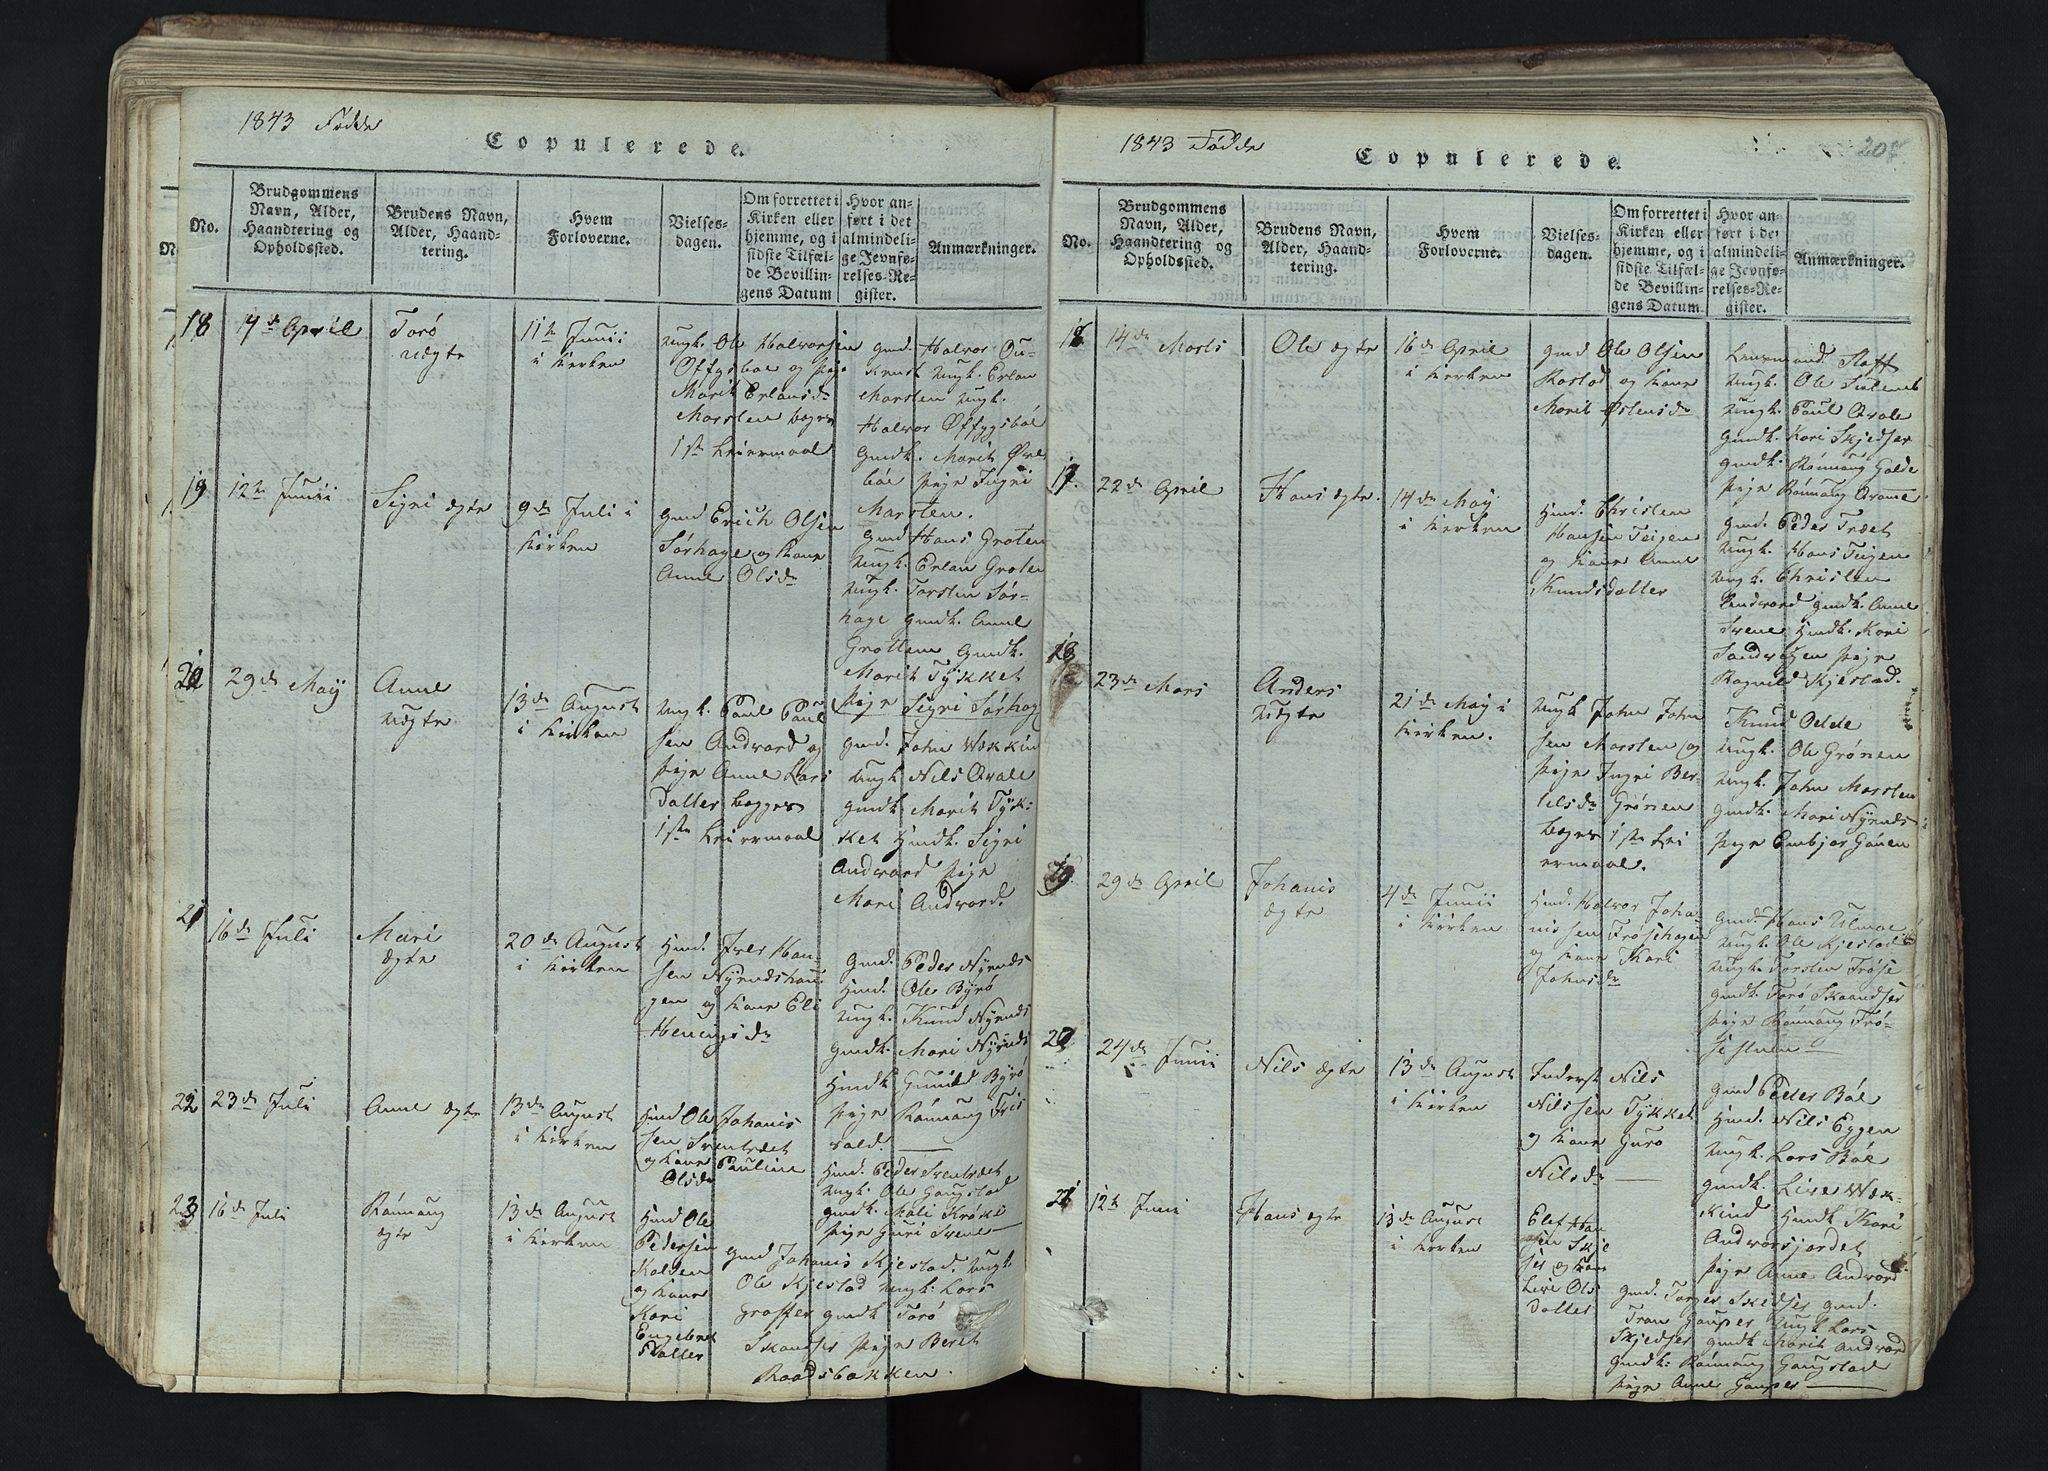 1843 Fødde
Copulerede.
No.
Brudgommens
Navn, Alder,
Haandtering og
Opholdssted.
Brudens Navn,
Alder, Haand-
tering.
Hvem
Forloverne.
Vielses-
dagen.
Om forrettet i
Kirken eller
hjemme, og i
sidste Tilfæl-
de Bevillin-
gens Datum
Hvor an-
ført i det
almindeli-
ge Jevnfø-
relses-Re-
gister.
Anmærkninger.
18
17de April
Torø
uægte
11te Junii
i Kirken
Ungk. Ole Halvorsen
Øffygsboe og Pige
Marit Erlandsdr
Marsten begges
1ste Leiermaal
Gmd. Halvor
Ungk. Erlan
Marsten Ungk.
Halvor Øffygsbøe
Gmdk. Marit
bøe Pige Ingri
Marsten.
19
12te Junii
Sigri ægte
9de Juli i
Kirken
Gmd Erich Olsen
Sørhage og Kone
Anne Olsdr
Gmd Hans Groten
Ungk. Erlan Groten
Ungk. Torsten Sør-
hage Gmdk. Anne
Grotten Gmdk.
Marit Tykket
Pige Sigri Sørhage
20
29de May
Anne
uægte
13de August
i Kirken
Ungk. Paul Paul
sen Andvord og
Pige Anne Lars
datter begges
1ste Leiermaal
Gmd. John
Ungk Nils Qvale
Gmdk. Marit Tyk-
ket Hmdk. Sigri
Andvord Pige
Mari Andvord.
21
16de Juli
Mari
ægte
20de August
i Kirken
Hmd. Iver Han-
sen Nyrndshau-
gen og Kone Eli
Heningsdr
Gmd. Peder Nyrnds
Hmd. Ole Byrø
Ungk. Knud Nyrnds
Gmdk. Mari Nyrnds
Hmdk Gunild Byrø
Pige Rønnaug Fris
vold.
22
23de Juli
Anne ægte
13de August
i Kirken
Hmd Ole Johanis
sen Sventrædet
og Kone Pauline
Olsdr
Hmd. Peder Svenstrædet
Ungk. Ole Gaugstad
Gmdk. Mali
Pige Guri Svene
23
16de Juli
Rønnaug
ægte
13de August
i Kirken
Hmd Ole
Pedersen
Kolden
og Kone
Kari
Engebret
sdatter
Gmd Johanis Kjestad. Ungk
Ole Kjestad Ungk: Lars
Graffer Gmdk Torø
Skandser Pige Berit
Raadsbakken.
1843 Fødde
207
Copulerede.
No.
Brudgommens
Navn, Alder,
Haandtering og
Opholdssted.
Brudens Navn,
Alder, Haand-
tering.
Hvem
Forloverne.
Vielses-
dagen.
Om forrettet i
Kirken eller
hjemme, og i
sidste Tilfæl-
de Bevillin-
gens Datum
Hvor an
ført i de
almindeli-
ge Jevnfø-
relses-Re-
gister.
Anmærkninger.
16
14de Marts
Ole ægte
16de April
i Kirken
Gmd Ole Olsen
og Kone
Marit Østensdr
Lensmand. Staff
Ungk. Ole
Ungk. Paul Qvale
Gmdk. Kari Skjedser
Gmdk. Rønnaug Galde
Pige Rønnaug
17
22de April
Hans ægte.
14de May
i Kirken
Hmd. Christen
Hansen Teigen
og Kone Anne
Knudsdatter
Gmd. Peder Trædt
Ungk. Hans Teigen
Ungk. Christen
Andvord Gmdk. Anne
Svene Hmdk. Kari
Sandvigen Pige
Ragnild Kjestad.
18
23de Mars
Anders
uægte
21de May i
Kirken.
Ungk John John
sen Marsten og
Pige Ingri Ber-
telsdr Grønen
begges 1ste Lei
ermaal.
Knud Odde
Ungk. Ole Grønen
Ungk. John Marsten
Gmdk. Mari Nyrnds
Pige Embjør
19
29de April
Johanis
ægte
4de Junii
i Kirken
Hmd. Halvor Joha-
nissen Frøsehagen
og Kone Kari
Johnsdr
Gmd. Hans
Ungk. Ole Kjestad
Ungk. Torsten Frøse
Gmdk. Torø Skaandser
Pige Rønnaug Frø-
sestuen
20
24de Junii
Nils ægte
13de August
i Kirken
Inderst Nils
Nilssen Tykket
og Kone Guro
Nilsdr
Gmd Peder Bøe
Hmd. Nils Eggen
Ungk. Lars Bøe
Gmdk. Live Wæk-
kind Hmdk Kari
Andvorsjordet
Pige Anne Andvord
21
12te Juni
Hans ægte
13de August
i Kirken
Elef Han
sen Skje
ser og Kone
Live Ols
datter
Gmd. Torger Skjedser Gmd.
Tron Gauper Ungk Lars
Skjedser Gmdk Marit Andvord
Gmdk: Rønnaug Gaugstad
Pige Anne Gauper